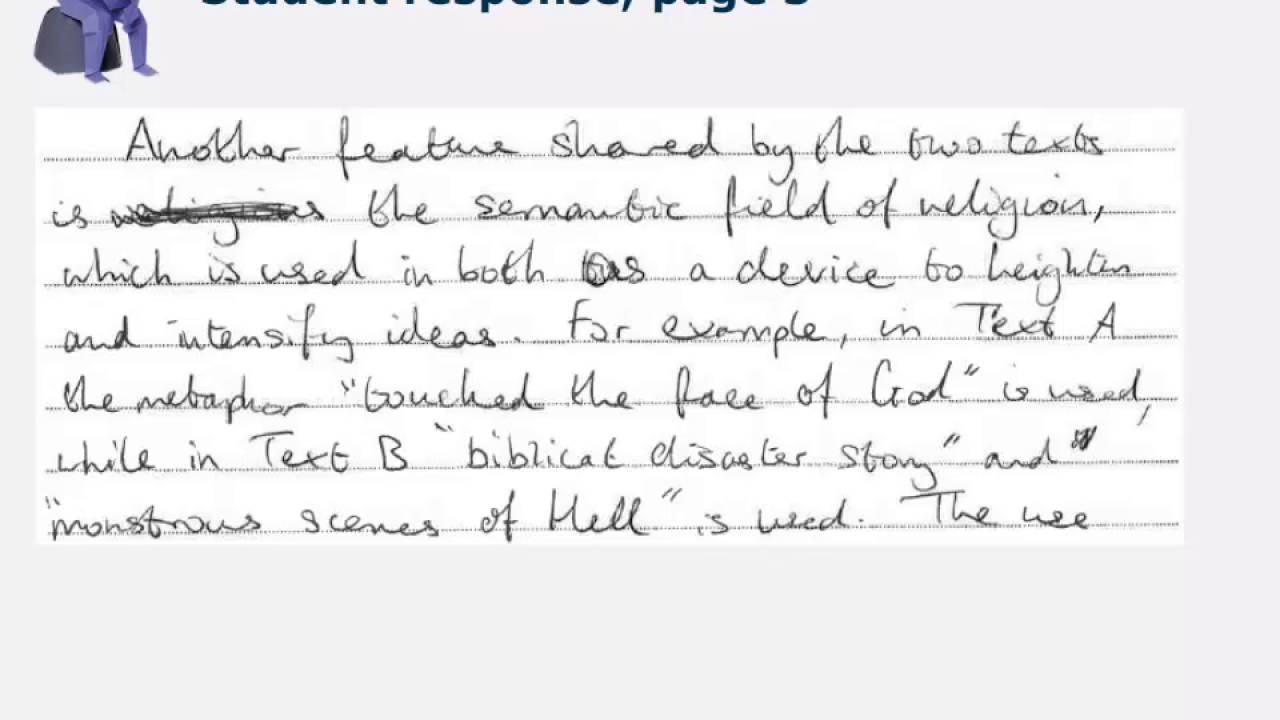 Student response, page 3
Another feature shared by the two texts
is the semantic field of religion,
which is used in both as a device to heighten
and intensify ideas. For example, in Text A
the metaphor "touched the face of God" is used,
while in Text B "biblical disaster story" and
"monstrous scenes of Hell" is used. The use